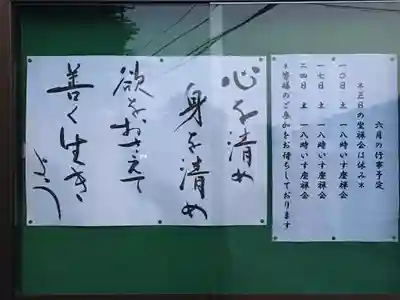 六月の行事予定
*三日の坐禅会は休み*
一〇日 土 一八時いす座禅会
一七日 土 一八時いす座禅会
二四日 土 一八時いす座禅会
*皆様のご参加をお待ちしております
心を清め
身を清め
欲をおさえて
善く生き
よう